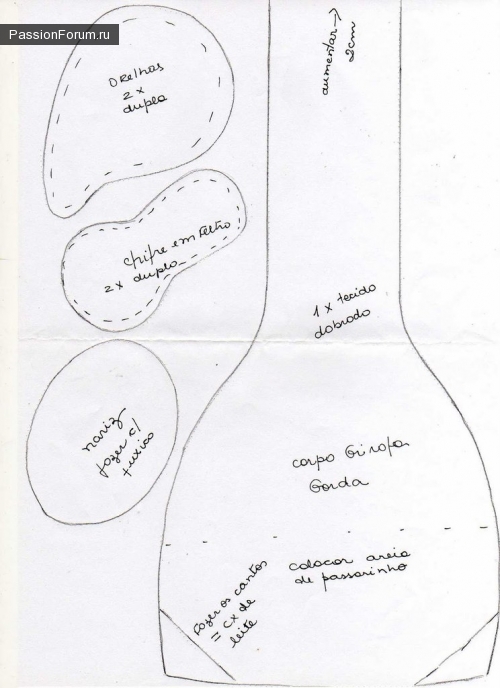 PassionForum.ru
Orelhas
2 x
duplo
aumentar →
2cm
chifre em feltro
2 x duplo
1 x tecido
dobrado
nariz
fazer c/
fuxico
corpo Girafa
Gorda
colocar areia
de passarinho
Fazer os cantos
= cx de
leite